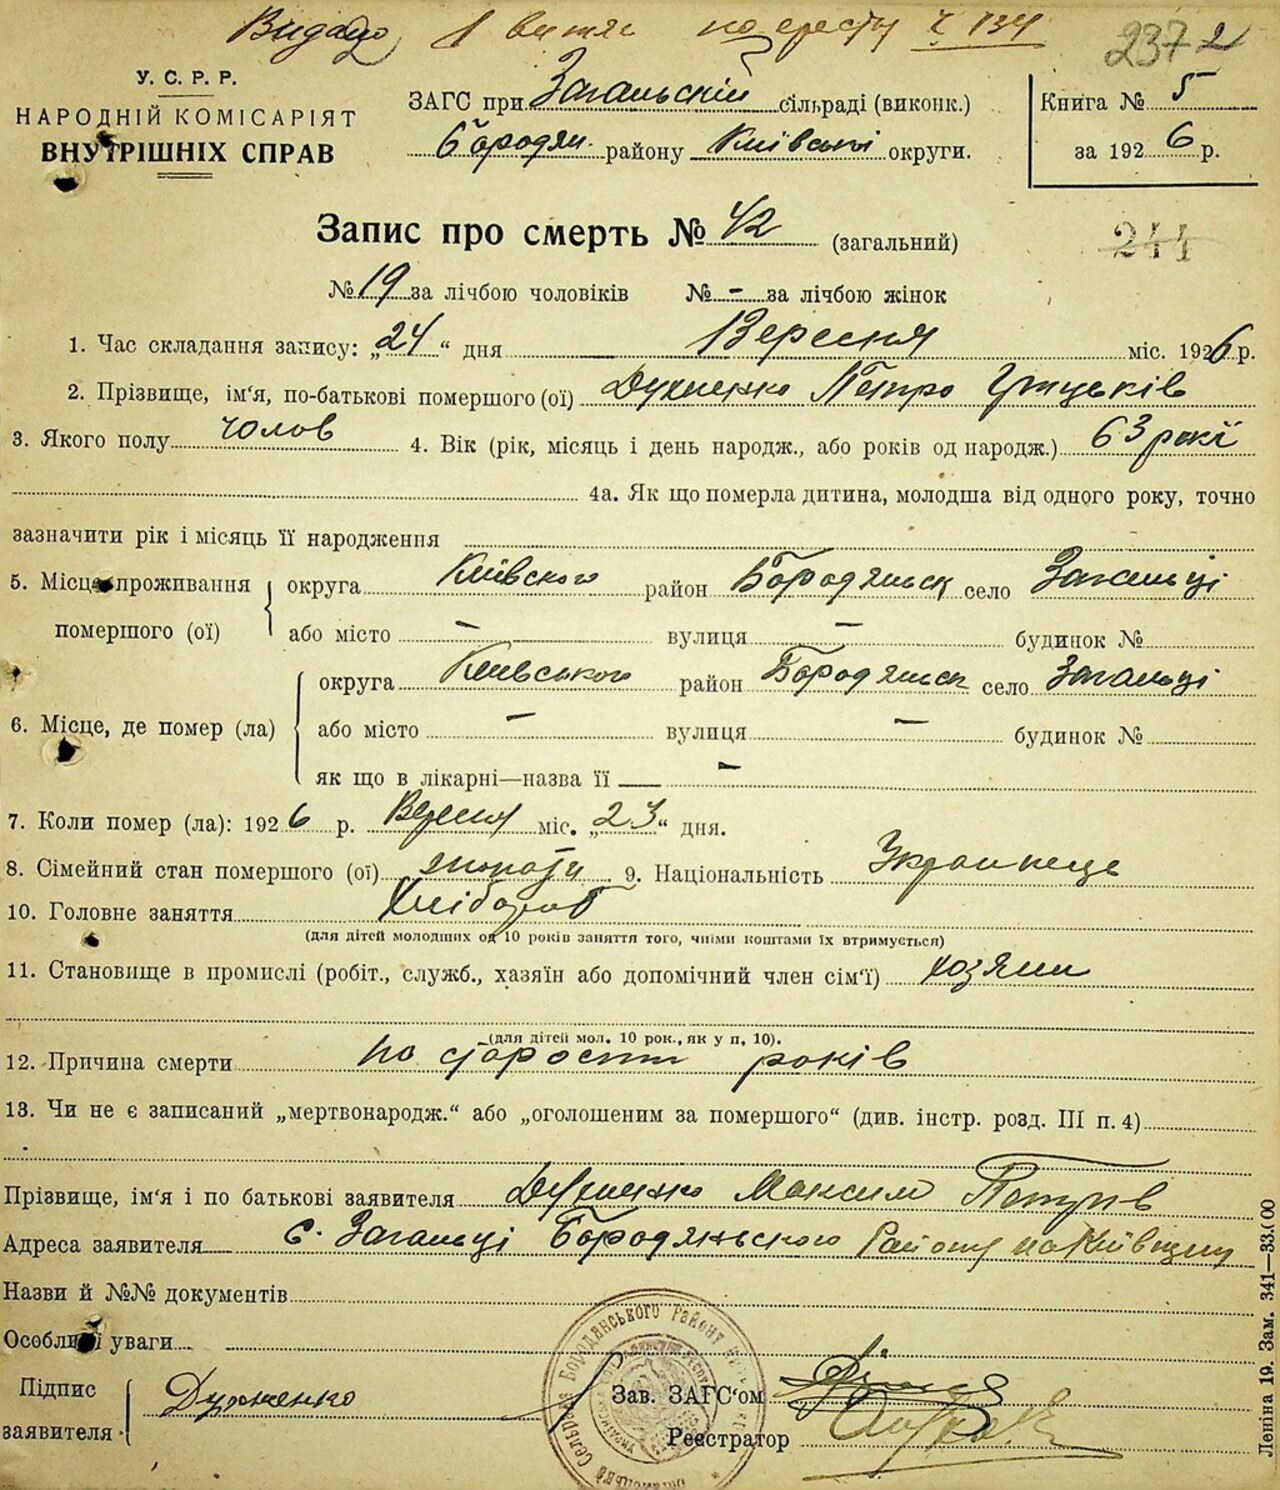 Видано 1 витяг по реєстру ч 134
237 2
У. С. Р. Р.
НАРОДНІЙ КОМІСАРІЯТ
ВНУТРІШНІХ СПРАВ
ЗАГС при Загальскій сільраді (виконк.)
Бородян. району Київські округи.
Книга № 5
за 1926 р.
Запис про смерть № 42 (загальний)
244
№ 19 за лічбою чоловіків № - за лічбою жінок
1. Час складання запису: „24“ дня Вересня міс. 1926 р.
2. Прізвище, ім'я, по-батькові помершого (ої) Петро Грицьків
3. Якого полу чолов 4. Вік (рік, місяць і день народж., або років од народж.) 63 рокі
4а. Як що померла дитина, молодша від одного року, точно
зазначити рік і місяць її народження
5. Місце проживання помершого (ої) округа Київского район Бородяньск село Загальці
або місто — вулиця — будинок №
6. Місце, де помер (ла) округа Київського район Бородяньск село Загальці
або місто — вулиця — будинок №
як що в лікарні—назва її —
7. Коли помер (ла): 1926 р. Вересня міс. „23“ дня.
8. Сімейний стан помершого (ої) 9. Національність Українець
10. Головне заняття Хлібороб
(для дітей молодших од 10 років заняття того, чиїми коштами їх втримується)
11. Становище в промислі (робіт., служб., хазяїн або допомічний член сім'ї) хозяин
(для дітей мол. 10 рок., як у п, 10).
12. Причина смерти по старости років
13. Чи не є записаний „мертвонародж.“ або „оголошеним за помершого“ (див. інстр. розд. III п. 4)
Прізвище, ім'я і по батькові заявителя Максим Петрів
Адреса заявителя с. Загальці Бородяньского Району на Київщині
Назви й №№ документів
Особливі уваги
Підпис заявителя
Зав. ЗАГС'ом
Реєстратор
Бородянського Району
Леніна 19. Зам. 341—33.000